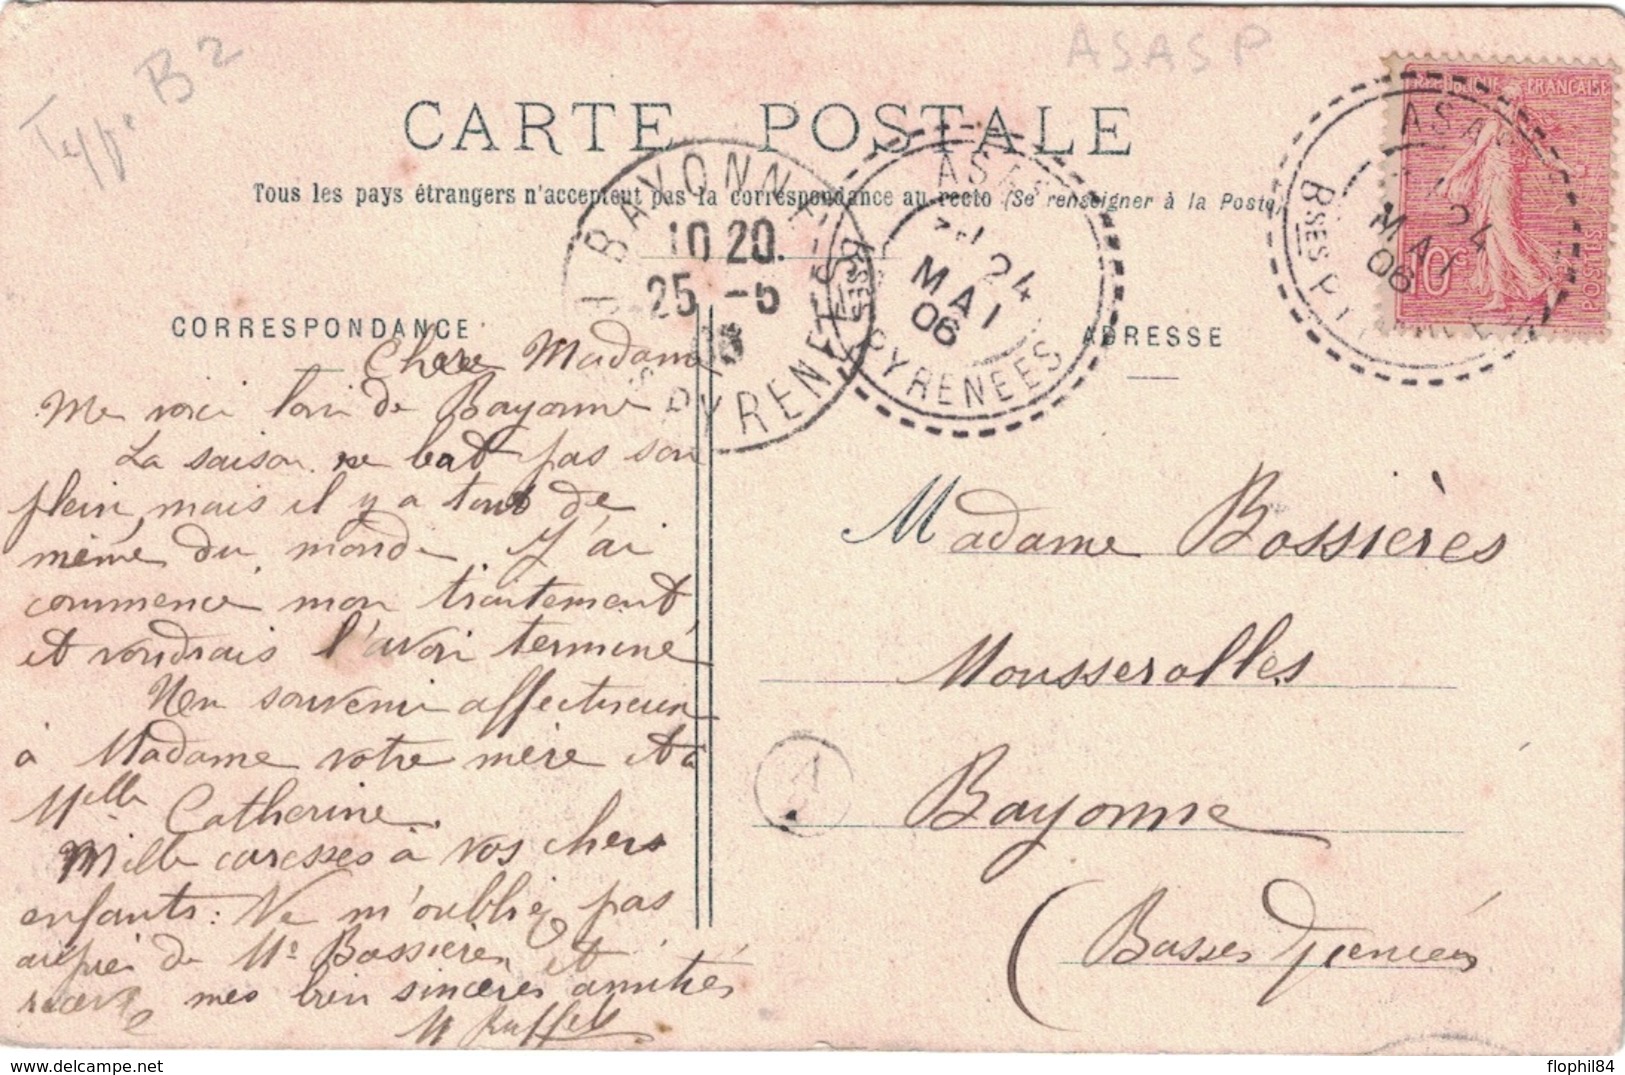 Type B2
ASASP
CARTE POSTALE
Tous les pays étrangers n'acceptent pas la correspondance au recto (Se renseigner à la Poste)
CORRESPONDANCE
ADRESSE
BAYONNE
10 20
25 -5
06
PYRENEES
ASASP
24
MAI
06
BSES PYRENEES
ASA
24
MAI
06
BSES PYRENEES
REPUBLIQUE FRANÇAISE
10c
POSTES
Chère Madame
Me voici loin de Bayonne
La saison ne bat pas son
plein, mais il y a tout de
même du monde J'ai
commencé mon traitement
et voudrais l'avoir terminé
Mon souvenir affectueux
à Madame votre mère et à
Melle Catherine.
Mille caresses à vos chers
enfants: Ne m'oubliez pas
auprès de Mr Bossières et
recevez mes bien sincères amitiés
M
Madame Bossières
Mousserolles
Bayonne
(Basses Pyrenées
A
delcampe.net
flophil84